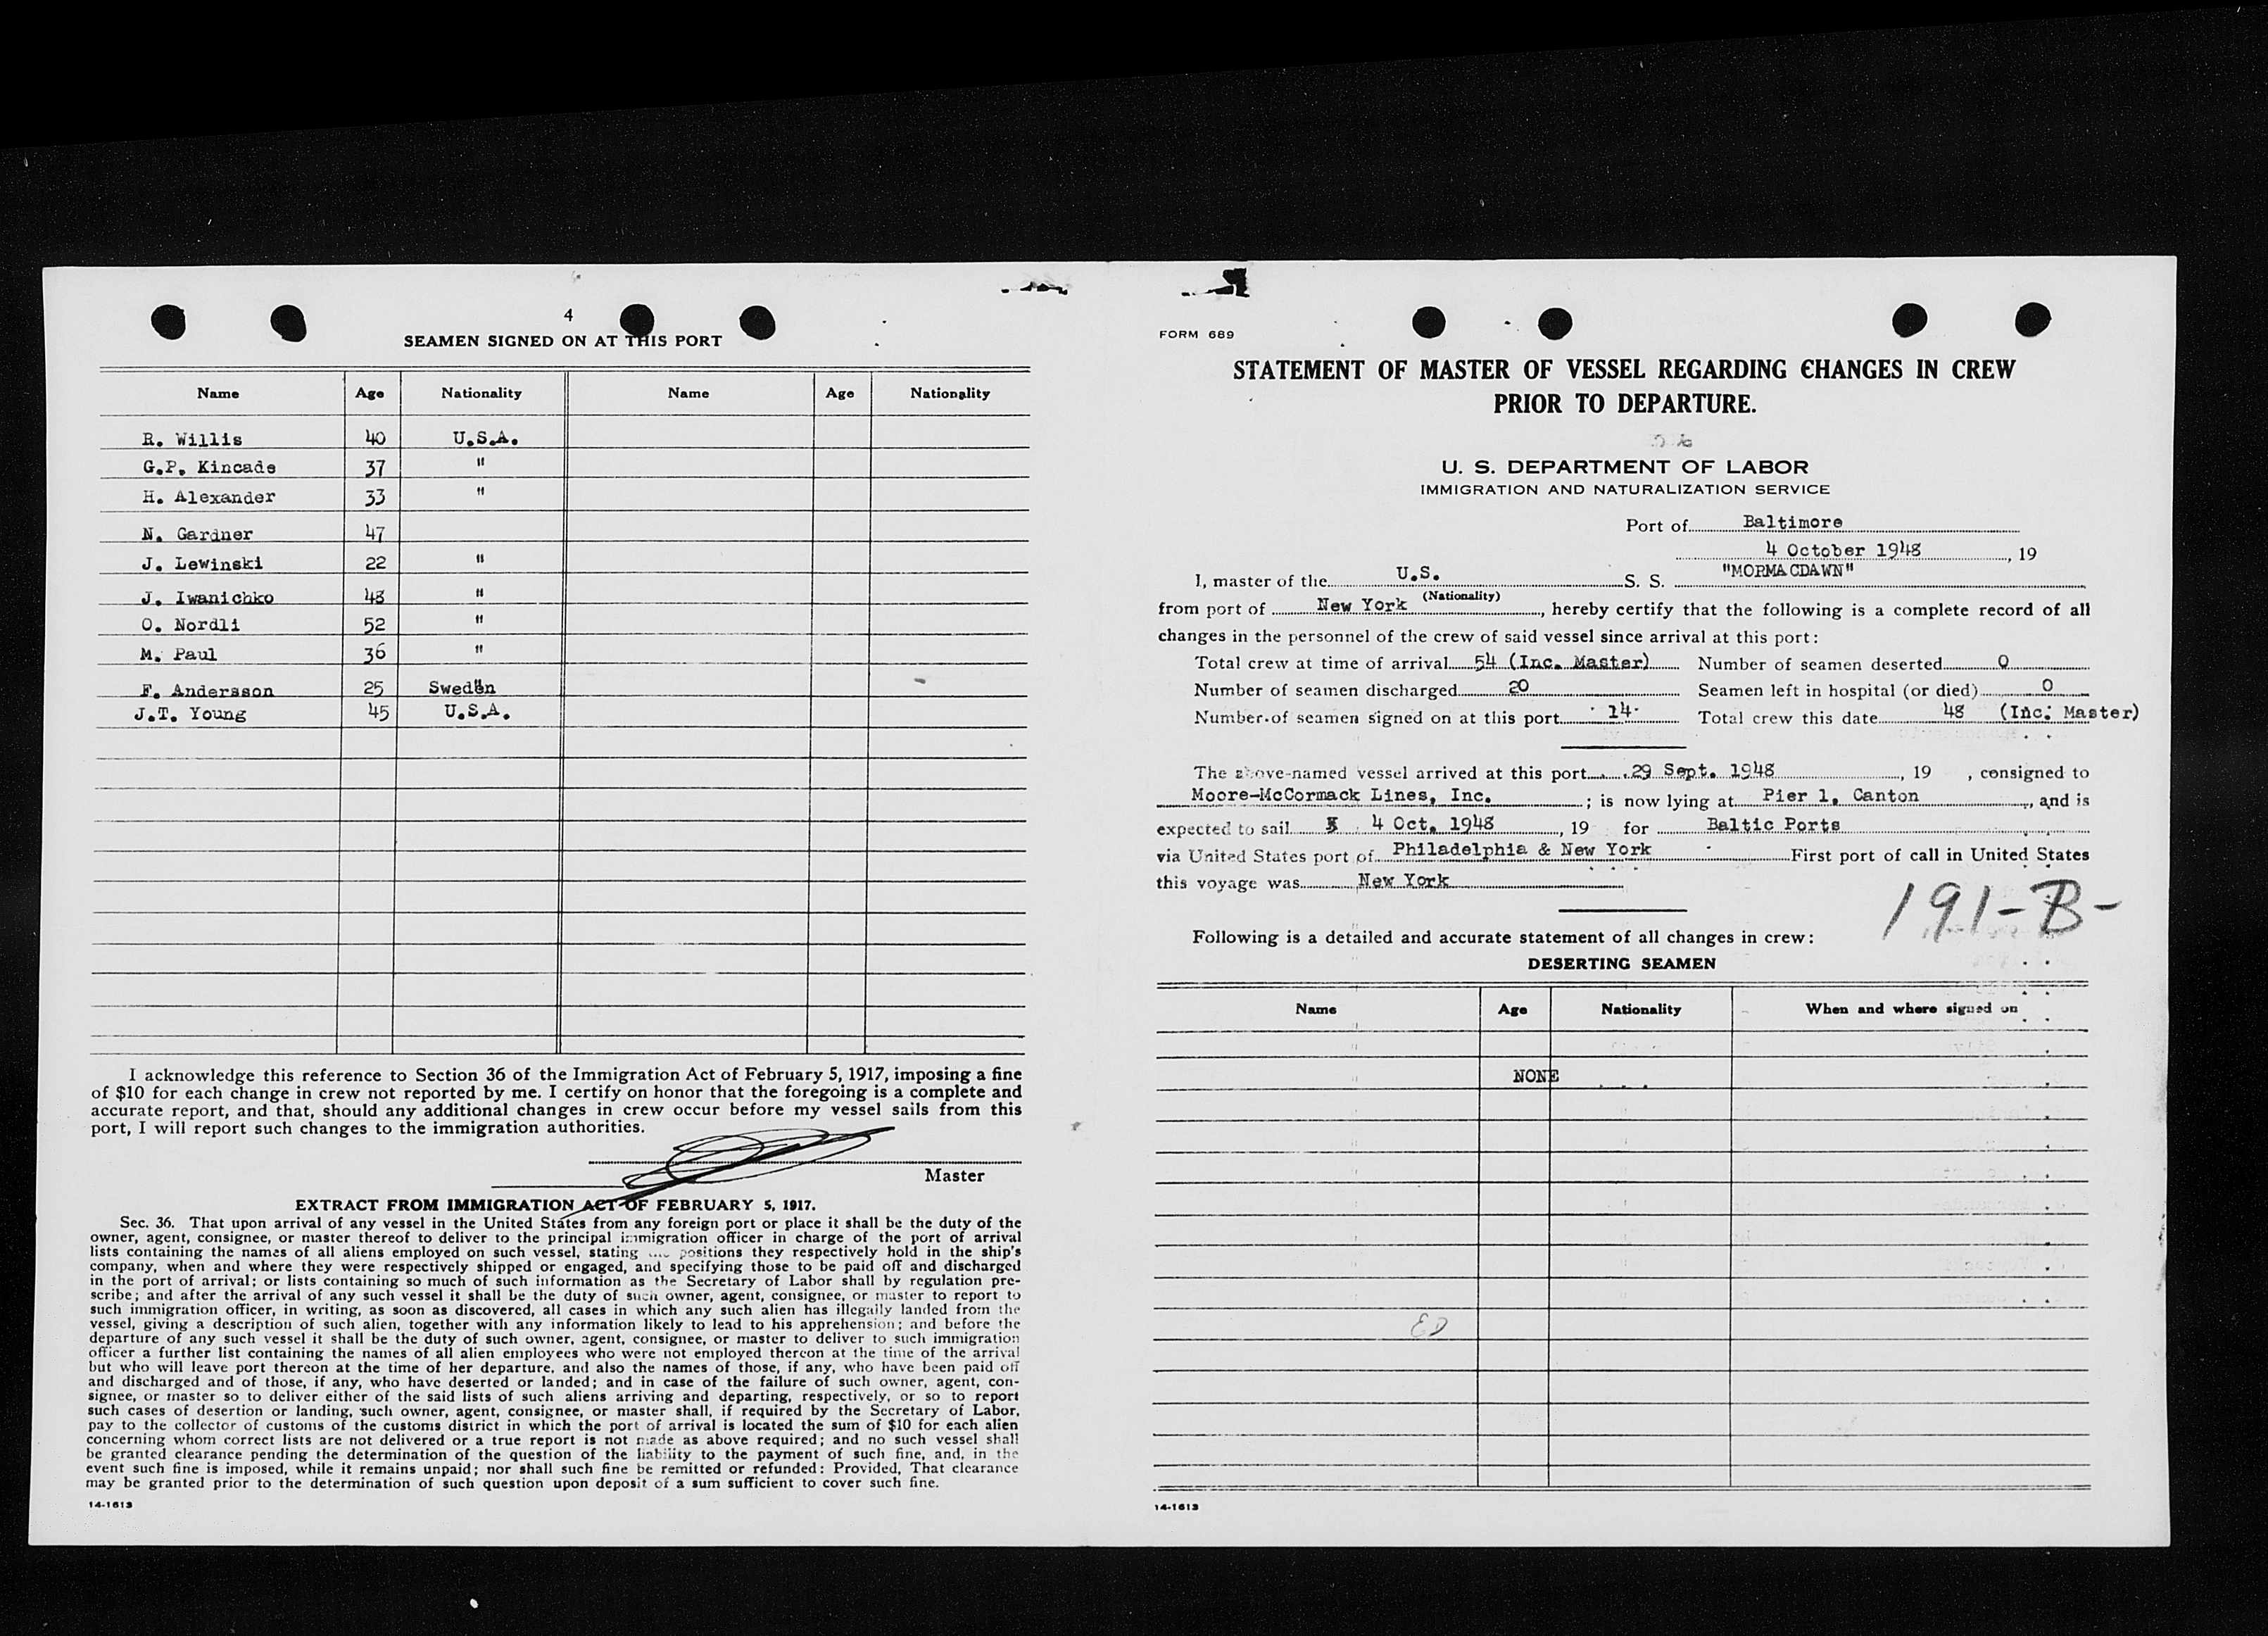 4
SEAMEN SIGNED ON AT THIS PORT
Name Age Nationality Name Age Nationality
R. Willis 40 U.S.A.
G.P. Kincade 37 "
H. Alexander 33 "
N. Gardner 47
J. Lewinski 22 "
J. Iwanichko 48 "
O. Nordli 52 "
M. Paul 36 "
F. Andersson 25 Sweden
J.T. Young 45 U.S.A.
I acknowledge this reference to Section 36 of the Immigration Act of February 5, 1917, imposing a fine
of $10 for each change in crew not reported by me. I certify on honor that the foregoing is a complete and
accurate report, and that, should any additional changes in crew occur before my vessel sails from this
port, I will report such changes to the immigration authorities.
Master
EXTRACT FROM IMMIGRATION ACT OF FEBRUARY 5, 1917.
Sec. 36. That upon arrival of any vessel in the United States from any foreign port or place it shall be the duty of the
owner, agent, consignee, or master thereof to deliver to the principal immigration officer in charge of the port of arrival
lists containing the names of all aliens employed on such vessel, stating the positions they respectively hold in the ship's
company, when and where they were respectively shipped or engaged, and specifying those to be paid off and discharged
in the port of arrival; or lists containing so much of such information as the Secretary of Labor shall by regulation pre-
scribe; and after the arrival of any such vessel it shall be the duty of such owner, agent, consignee, or master to report to
such immigration officer, in writing, as soon as discovered, all cases in which any such alien has illegally landed from the
vessel, giving a description of such alien, together with any information likely to lead to his apprehension; and before the
departure of any such vessel it shall be the duty of such owner, agent, consignee, or master to deliver to such immigration
officer a further list containing the names of all alien employees who were not employed thereon at the time of the arrival
but who will leave port thereon at the time of her departure, and also the names of those, if any, who have been paid off
and discharged and of those, if any, who have deserted or landed; and in case of the failure of such owner, agent, con-
signee, or master so to deliver either of the said lists of such aliens arriving and departing, respectively, or so to report
such cases of desertion or landing, such owner, agent, consignee, or master shall, if required by the Secretary of Labor,
pay to the collector of customs of the customs district in which the port of arrival is located the sum of $10 for each alien
concerning whom correct lists are not delivered or a true report is not made as above required; and no such vessel shall
be granted clearance pending the determination of the question of the liability to the payment of such fine, and, in the
event such fine is imposed, while it remains unpaid; nor shall such fine be remitted or refunded: Provided, That clearance
may be granted prior to the determination of such question upon deposit of a sum sufficient to cover such fine.
14-1613
FORM 689
STATEMENT OF MASTER OF VESSEL REGARDING CHANGES IN CREW
PRIOR TO DEPARTURE.
U. S. DEPARTMENT OF LABOR
IMMIGRATION AND NATURALIZATION SERVICE
Port of Baltimore
4 October 1948, 19
I, master of the U.S. S. S. "MORMACDAWN"
(Nationality)
from port of New York, hereby certify that the following is a complete record of all
changes in the personnel of the crew of said vessel since arrival at this port:
Total crew at time of arrival 54 (Inc. Master) Number of seamen deserted 0
Number of seamen discharged 20 Seamen left in hospital (or died) 0
Number of seamen signed on at this port 14 Total crew this date 48 (Inc. Master)
The above-named vessel arrived at this port 29 Sept. 1948, 19 , consigned to
Moore-McCormack Lines, Inc. ; is now lying at Pier 1, Canton, and is
expected to sail 4 Oct. 1948, 19 for Baltic Ports
via United States port of Philadelphia & New York First port of call in United States
this voyage was New York
191-B-
Following is a detailed and accurate statement of all changes in crew:
DESERTING SEAMEN
Name Age Nationality When and where signed on
NONE
14-1613